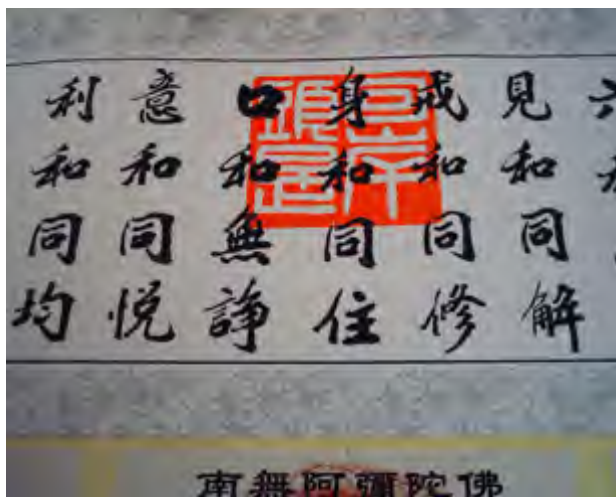 見和同解
戒和同修
身和同住
口和無諍
意和同悦
利和同均
南無阿彌陀佛